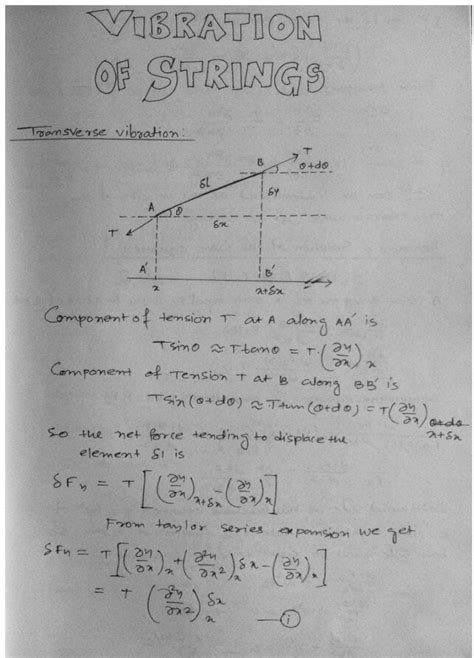 VIBRATION
OF STRINGS
Transverse vibration:
B
T
θ+dθ
δl
δy
A
θ
δx
T
A′
B′
x
x+δx
Component of tension T at A along AA′ is
Tsinθ ≈ Ttanθ = T·(∂y/∂x)x
Component of Tension T at B along BB′ is
Tsin(θ+dθ) ≈ Ttan(θ+dθ) = T(∂y/∂x)x+δx
So the net force tending to displace the
element δl is
δFy = T[(∂y/∂x)x+δx - (∂y/∂x)x]
From taylor series expansion we get
δFy = T[(∂y/∂x)x + (∂²y/∂x²)x δx - (∂y/∂x)x]
= T (∂²y/∂x²)x δx —(i)